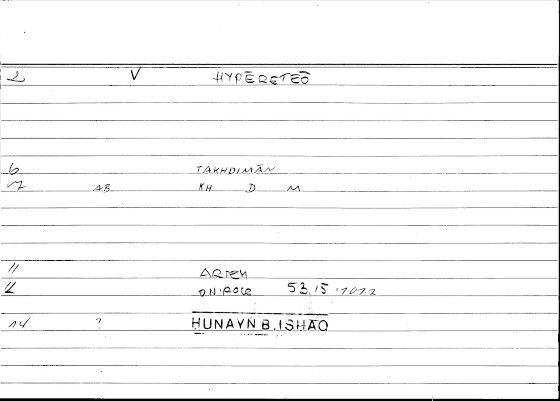 2 V HYPĒRETEŌ
6 TAKHDIMĀN
7 AB KH D M
11 ARTEM
12 ON'ROCR 53,15 -
14 ? HUNAYN B.ISHAQ